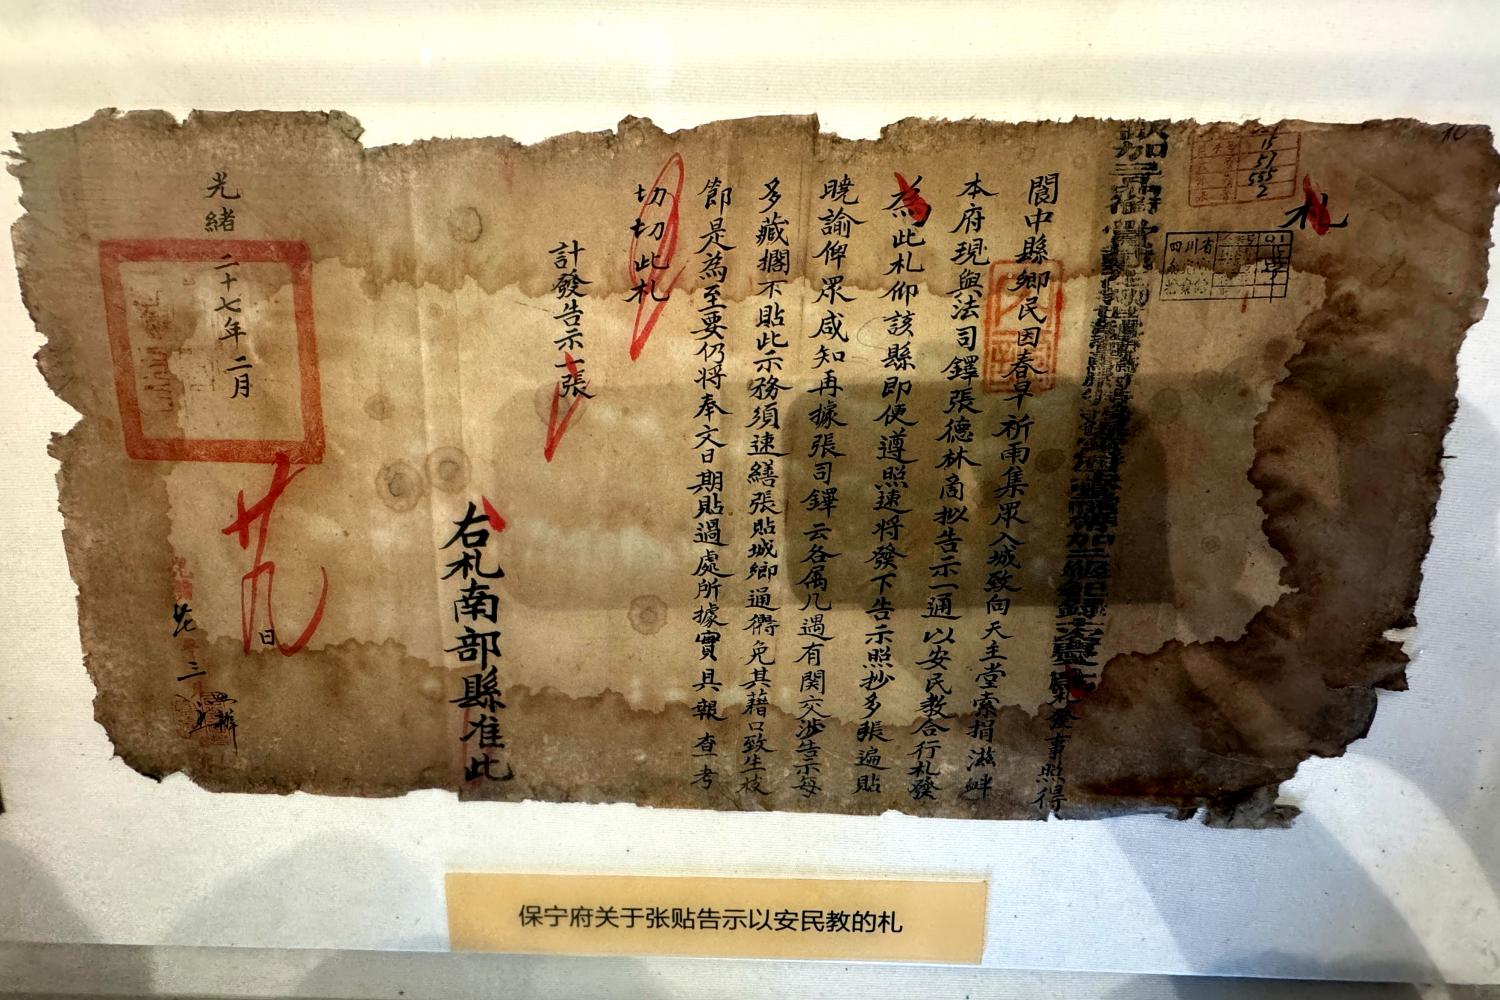 札
札發事照得
閬中縣鄉民因春旱祈雨集眾入城致向天主堂索捐滋衅
本府現與法司鐸張德林啇拟告示一通以安民教合行札發
為此札仰該縣即便遵照速将發下告示照抄多張遍貼
曉諭俾眾咸知再據張司鐸云各属凡遇有関交涉告示每
多藏擱不貼此示務須速繕張貼城鄉通衢免其藉口致生枝
節是為至要仍将奉文日期貼過處所據實具報查考
切切此札
計發告示一張
右札南部縣准此
光緒二十七年二月
廿九
日
保宁府关于张贴告示以安民教的札